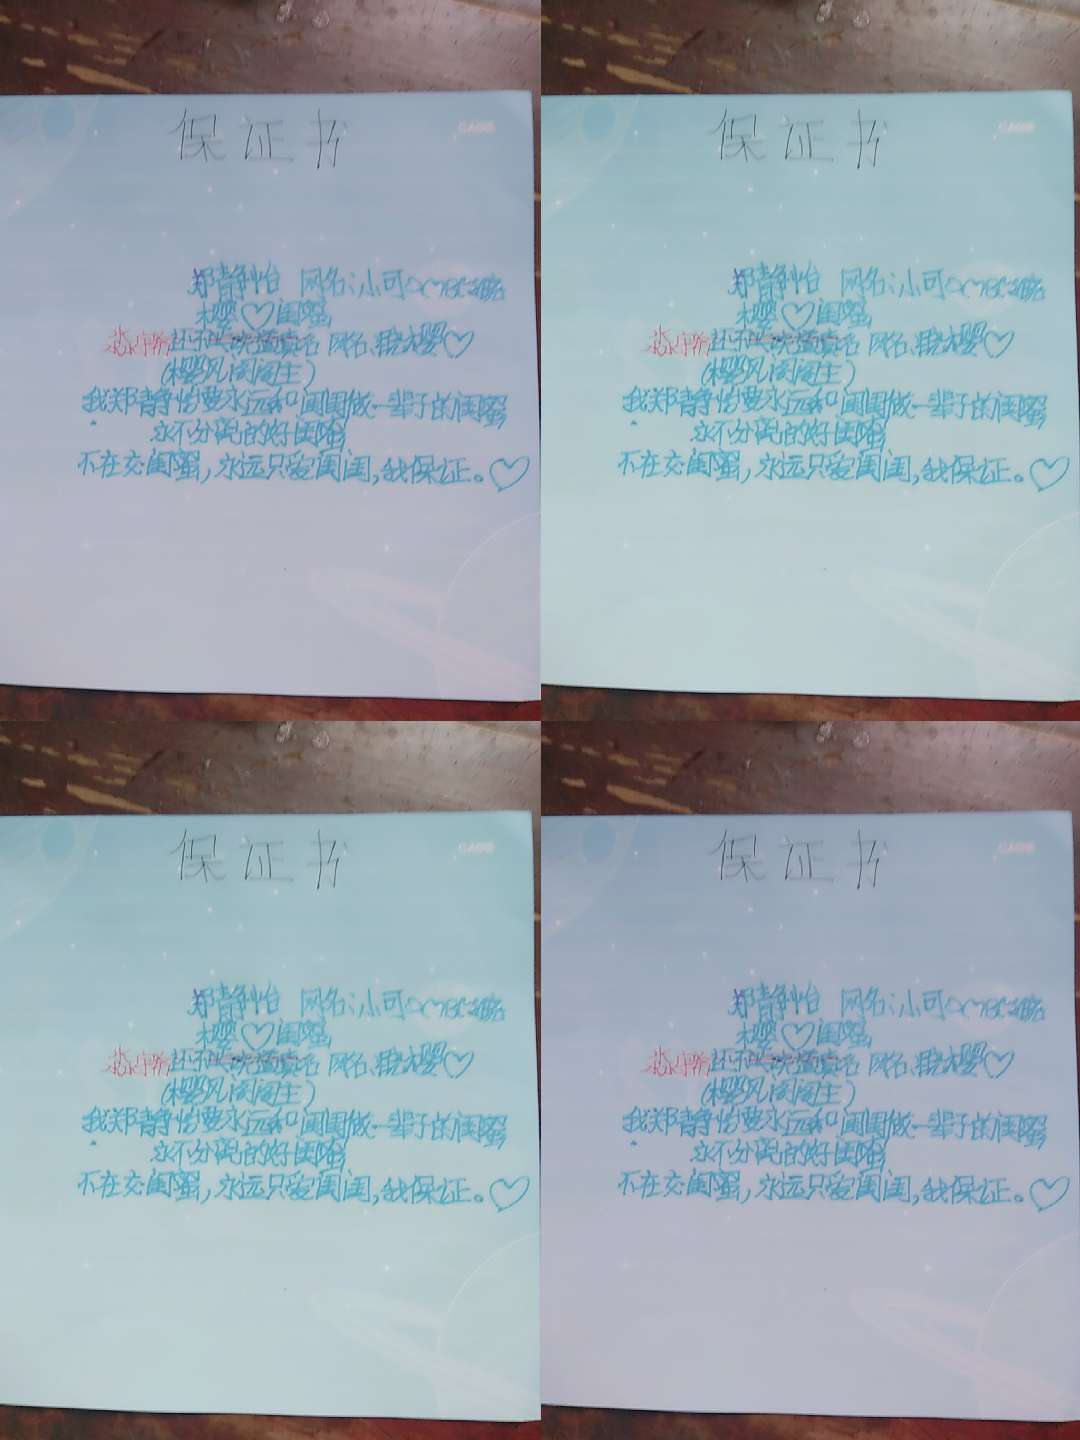 保证书
郑静怡 网名:小可
樱♡闺蜜
还不 网名、 樱♡
(樱风阁阁主)
我郑静怡要永远和闺闺做一辈子的闺蜜
永不分离的好闺蜜
不在交闺蜜,永远只爱闺闺,我保证。♡
保证书
郑静怡 网名:小可
樱♡闺蜜
还不 网名、 樱♡
(樱风阁阁主)
我郑静怡要永远和闺闺做一辈子的闺蜜
永不分离的好闺蜜
不在交闺蜜,永远只爱闺闺,我保证。♡
保证书
郑静怡 网名:小可
樱♡闺蜜
还不 网名、 樱♡
(樱风阁阁主)
我郑静怡要永远和闺闺做一辈子的闺蜜
永不分离的好闺蜜
不在交闺蜜,永远只爱闺闺,我保证。♡
保证书
郑静怡 网名:小可
樱♡闺蜜
还不 网名、 樱♡
(樱风阁阁主)
我郑静怡要永远和闺闺做一辈子的闺蜜
永不分离的好闺蜜
不在交闺蜜,永远只爱闺闺,我保证。♡